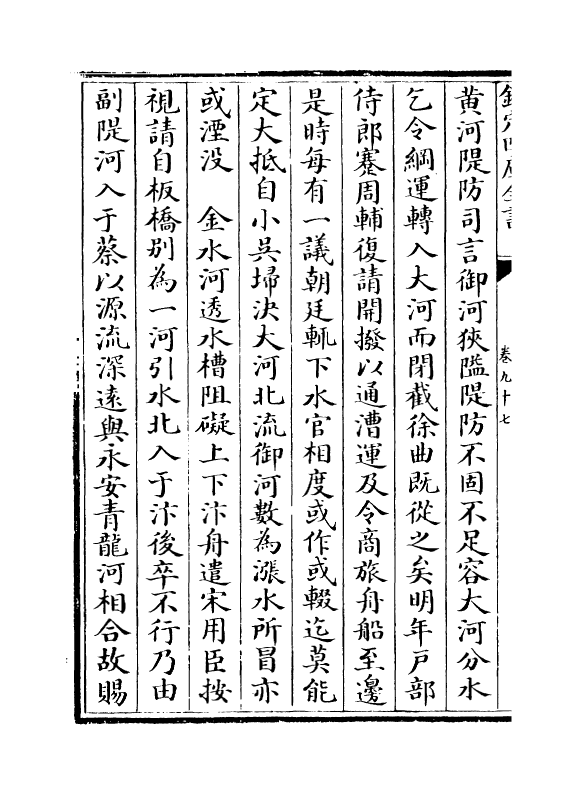 欽定四庫全書
卷九十七
黄河隄防司言御河狹隘隄防不固不足容大河分水
乞令綱運轉入大河而閉截徐曲既從之矣明年戸部
侍郎蹇周輔復請開撥以通漕運及令商旅舟船至邊
是時每有一議朝廷輒下水官相度或作或輟迄莫能
定大抵自小吳埽決大河北流御河數為漲水所冒亦
或湮没　金水河透水槽阻礙上下汴舟遣宋用臣按
視請自板橋别為一河引水北入于汴後卒不行乃由
副隄河入于蔡以源流深逺與永安青龍河相合故賜